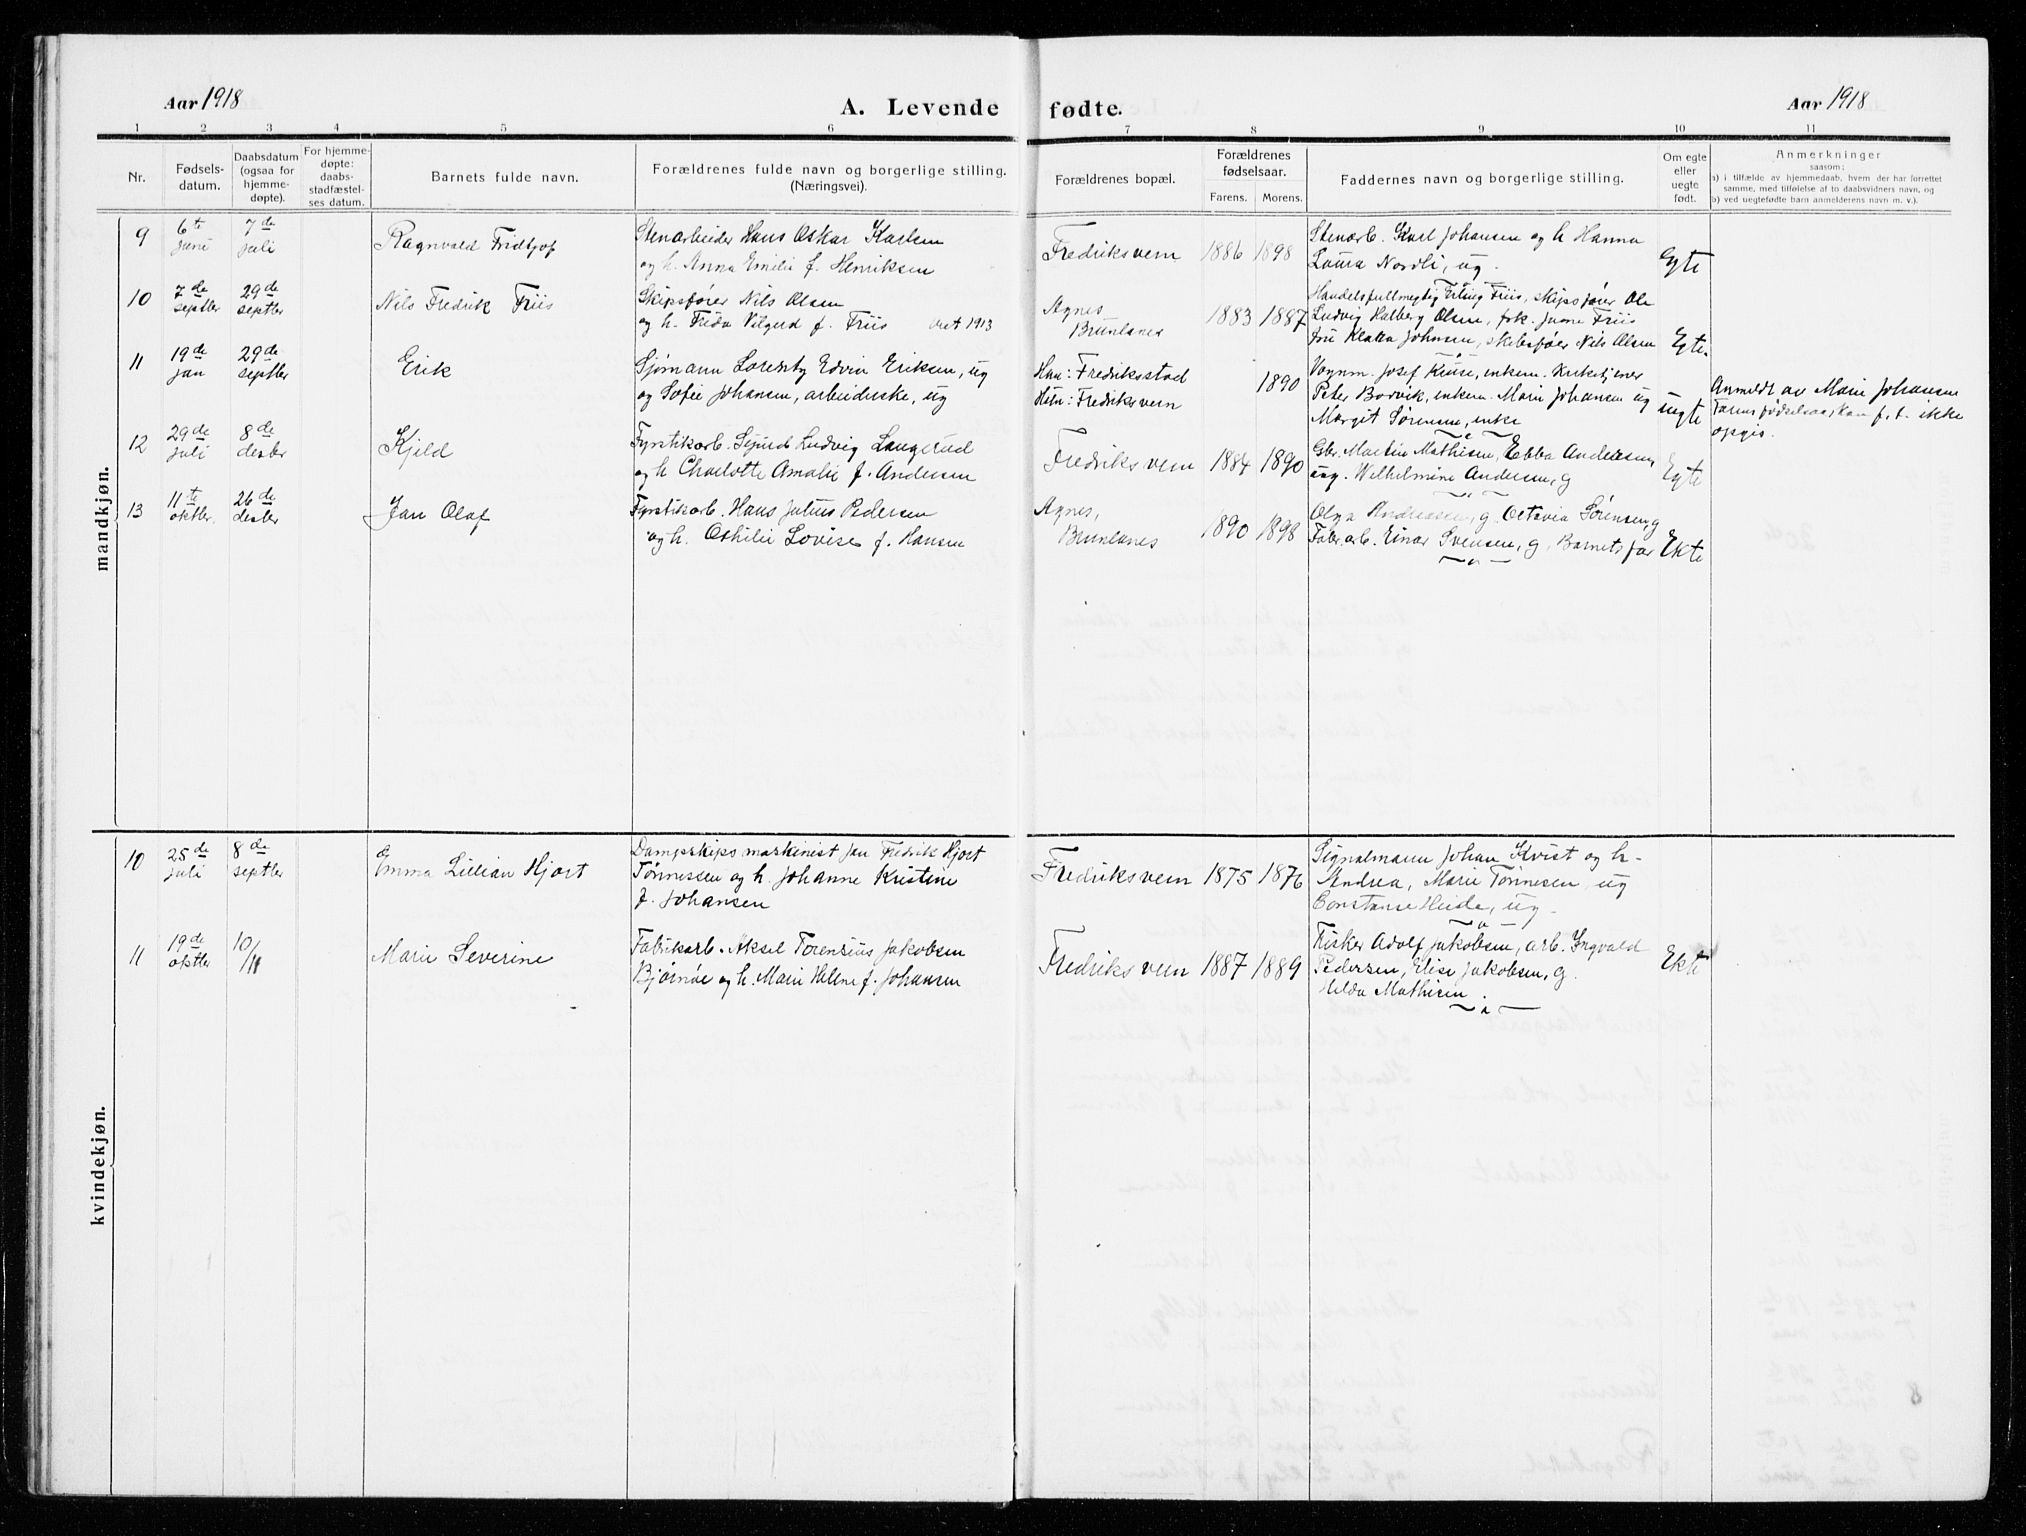 Aar 1918
A. Levende fødte.
Aar 1918
1 2 3 4 5 6 7 8 9 10 11
Nr.
Fødsels-
datum.
Daabsdatum
(ogsaa for
hjemme-
døpte).
For hjemme-
døpte:
daabs-
stadfæstel-
ses datum.
Barnets fulde navn.
Forældrenes fulde navn og borgerlige stilling.
(Næringsvei).
Forældrenes bopæl.
Forældrenes
fødselsaar.
Farens. Morens.
Faddernes navn og borgerlige stilling.
Om egte
eller
uegte
født.
Anmerkninger
saasom:
a) i tilfælde av hjemmedaab, hvem der har forrettet
samme, med tilføielse af to daabsvidners navn, og
b) ved uegtefødte barn anmelderens navn m. v.).
mandkjøn.
9
6te
juni
7de
juli
Ragnvald Fridtjof
Stenarbeider Hans Oskar Karlsen
og h. Anna Emilie f. Henriksen
Fredriksvern
1886 1898
Stenarb. Karl Johansen og h Hanna
Laura Nordli, ug.
Egte
10
7de
septbr
29de
septbr
Nils Fredrik Friis
Skipsfører Nils Olsen
og h. Freda Valgerd f. Friis viet 1913
Agnes
Brunlanes
1883 1887
Handelsfullmegtig Erling Friis, skipsfører Ole
Ludvig Halberg Olsen, frk. Friis
Klara Johnsen, skibsfører Nils Olsen
Egte.
11
19de
jan
29de
septbr
Erik
Sjømann Lorentz Edvin Eriksen, ug
og Sofie Johansen, arbeiderske, ug
Han: Fredriksstad
Hun: Fredriksvern
1890
Vognm. Josef Kruse, enkem. Kirketjener
Peter Borvik, enkem. Marie Johansen ug
Margit Sørensen, enke
uegte
Anmeldt av Marie Johansen
Farens fødselsaar kan f. t. ikke
opgis.
12
29de
juli
8de
desbr
Kjeld
Fyrstikarb. Sigurd Ludvig Langerud
og h Charlotte Amalie f. Andersen
Fredriksvern
1884 1890
Gbr. Martin Mathisen, Ebba Andersen,
ug. Wilhelmine Andersen, g
Egte
13
11te
oktbr.
26de
desbr
Jan Olaf
Fyrstikarb. Hans Julius Pedersen
og h. Othilie Lovise f. Hansen
Agnes,
Brunlanes
1890 1898
Olga Andreassen, g. Octavia Sørensen g
Fabr. arb. Einar Svensen, g, Barnets far
Ekte
kvindekjøn.
10
25de
juli
8de
septbr
Emma Lillian Hjort
Dampskips maskinist Jan Fredrik Hjort
Tønnessen og h. Johanne Kristine
f. Johansen
Fredriksvern
1875 1876
Signalmann Johan Kvist og h-
Andrea, Marie Tønnesen, ug
Constanse Heide, ug-
11
19de
oktbr
10/11
Marie Severine
Fabrikarb. Aksel Torensius Jakobsen
Bjørnøe og h. Marie Helene f. Johansen
Fredriksvern
1887 1889
Fisker Adolf Jakobsen, arb. Ingvald
Pedersen, Elise Jakobsen, g.
Hilda Mathisen.
Ekte